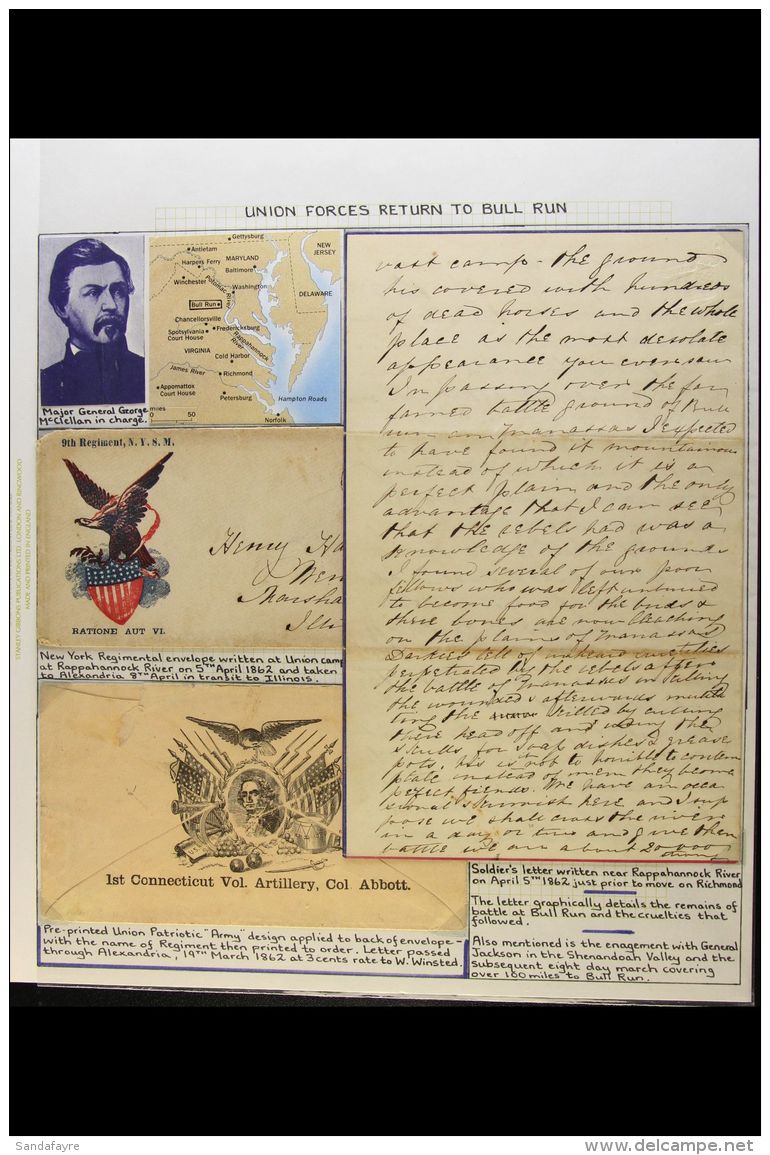 UNION FORCES RETURN TO BULL RUN
Major General George
McClellan in charge.
Gettysburg
Antietam
Harpers Ferry
MARYLAND
Baltimore
NEW
JERSEY
Winchester
Potomac River
Washington
DELAWARE
Bull Run
Chancellorsville
Spotsylvania
Court House
Fredericksburg
Rappahannock
River
VIRGINIA
Cold Harbor
James River
Richmond
Appomattox
Court House
Petersburg
Hampton Roads
Norfolk
miles
0 50
9th Regiment, N. Y. S. M.
RATIONE AUT VI.
Henry Ha
Wen
Marsha
Illi
New York Regimental envelope written at Union camp
at Rappahannock River on 5TH April 1862 and taken
to Alexandria 8TH April in transit to Illinois.
1st Connecticut Vol. Artillery, Col Abbott.
Pre-printed Union Patriotic "Army" design applied to back of envelope -
with the name of Regiment then printed to order. Letter passed
through Alexandria, 19TH March 1862 at 3cents rate to W. Winsted.
vast camp - the ground
his covered with hundreds
of dead horses and the whole
place as the most desolate
appearance you ever saw
In passing over the far
famed battle ground of Bull
run an Manassas I expected
to have found it mountainous
instead of which it is a
perfect plain and the only
advantage that I can see
that the rebels had was a
knowledge of the grounds
I found several of our poor
fellows who was left unburied
to become food for the birds &
there bones are now bleaching
on the plains of Manassas
Darkies tell of unheard cruelties
perpetrated by the rebels after
the battle of Manassas in killing
the wounded & afterwards mutila
ting the killed by cutting
there head off and using the
sculls for soap dishes & grease
pots. his is not to horrible to contem
plate instead of men they become
perfect fiends. We have an occa
sional skirmish here and I sup
pose we shall cross the river
in a day or two and give them
battle we are about 20 000
Soldier's letter written near Rappahannock River
on April 5TH 1862 just prior to move on Richmond
The letter graphically details the remains of
battle at Bull Run and the cruelties that
followed.
Also mentioned is the enagement with General
Jackson in the Shenandoah Valley and the
subsequent eight day march covering
over 100 miles to Bull Run.
STANLEY GIBBONS PUBLICATIONS LTD. LONDON AND RINGWOOD
MADE AND PRINTED IN ENGLAND
Sandafayre
delcampe.net